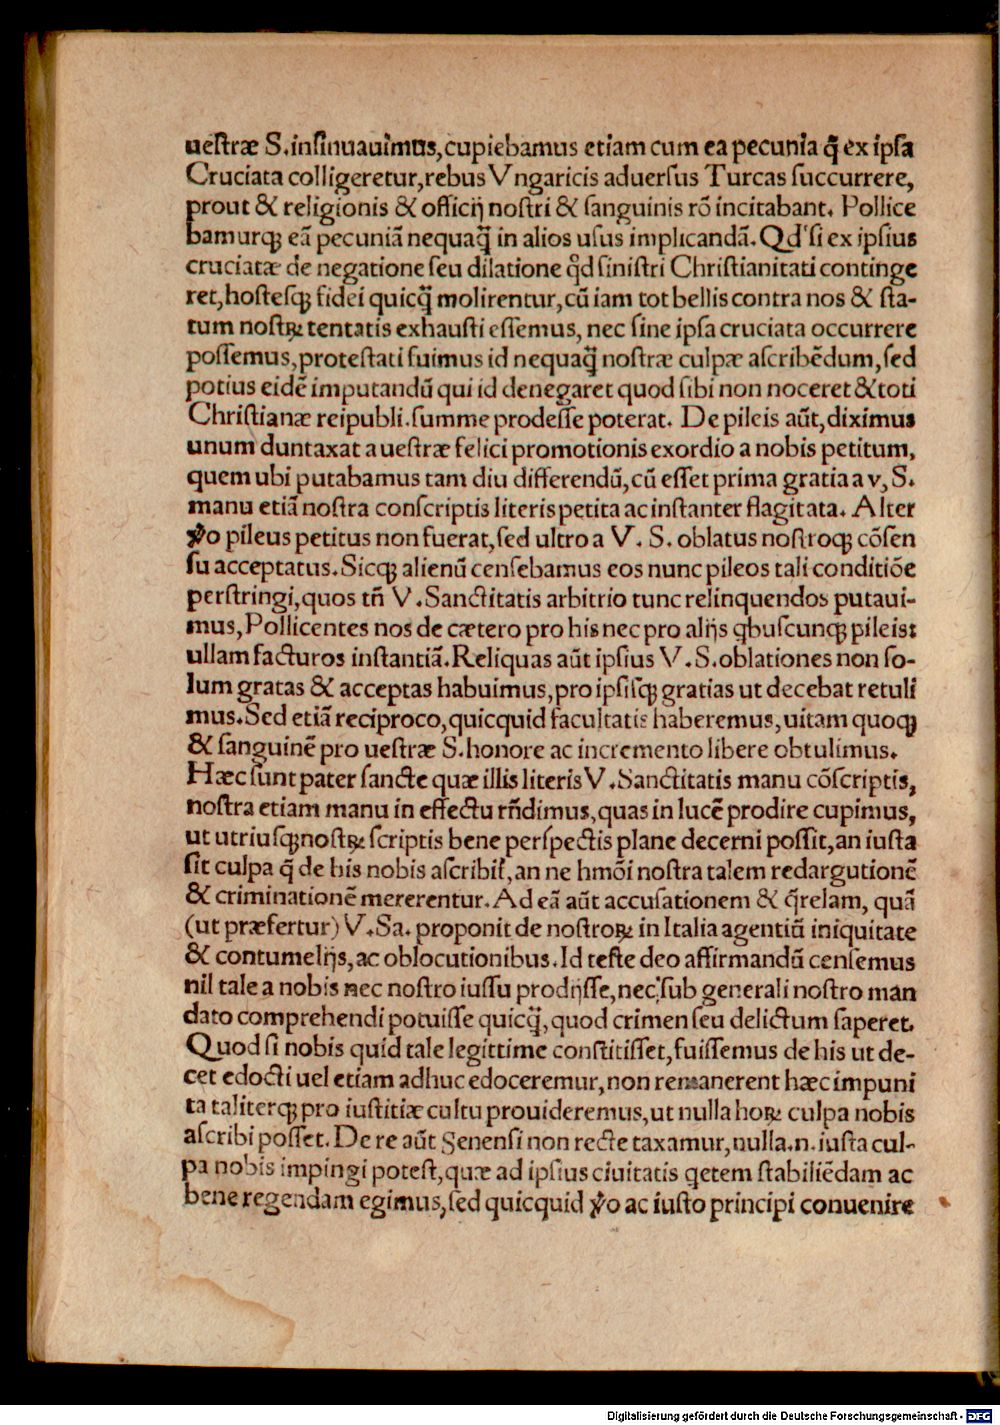 ueſtræ S.inſinuauimus,cupiebamus etiam cum ea pecunia q̃ ex ipſa
Cruciata colligeretur,rebus Vngaricis aduerſus Turcas ſuccurrere,
prout & religionis & officij noſtri & ſanguinis rõ incitabant. Pollice
bamurqꝫ eã pecuniã nequaq̃ in alios uſus implicandã.Qd' ſi ex ipſius
cruciatæ de negatione ſeu dilatione qd̃ siniſtri Chriſtianitati continge
ret,hoſteſqꝫ fidei quicq̃ molirentur,cũ iam tot bellis contra nos & ſta-
tum noſtꝝ tentatis exhauſti eſſemus, nec ſine ipſa cruciata occurrere
poſſemus,proteſtati fuimus id nequaq̃ noſtræ culpæ aſcribẽdum,ſed
potius eidẽ imputandũ qui id denegaret quod ſibi non noceret & toti
Chriſtianæ reipubli.ſumme prodeſſe poterat. De pileis aũt,diximus
unum duntaxat a ueſtræ felici promotionis exordio a nobis petitum,
quem ubi putabamus tam diu differendũ,cũ eſſet prima gratia a v,S.
manu etiã noſtra conſcriptis literis petita ac inſtanter flagitata. Alter
ꝟo pileus petitus non fuerat,ſed ultro a V. S. oblatus noſtroqꝫ cõſen
ſu acceptatus.Sicqꝫ alienũ cenſebamus eos nunc pileos tali conditiõe
perſtringi,quos tñ V.Sanctitatis arbitrio tunc relinquendos putaui-
mus,Pollicentes nos de cætero pro his nec pro alijs qbuſcunqꝫ pileis:
ullam facturos inſtantiã.Reliquas aũt ipſius V.S.oblationes non ſo-
lum gratas & acceptas habuimus,pro ipſisqꝫ gratias ut decebat retuli
mus.Sed etiã reciproco,quicquid facultatis haberemus,uitam quoqꝫ
& ſanguinẽ pro ueſtræ S.honore ac incremento libere obtulimus.
Hæc ſunt pater ſancte quæ illis literis V.Sanctitatis manu cõſcriptis,
noſtra etiam manu in effectu rñdimus,quas in lucẽ prodire cupimus,
ut utriuſqꝫ noſtꝝ ſcriptis bene perſpectis plane decerni poſſit,an iuſta
ſit culpa q̃ de his nobis aſcribit̃,an ne hmõi noſtra talem redargutionẽ
& criminationẽ mererentur.Ad eã aũt accuſationem & q̃relam, quã
(ut præfertur) V.Sa. proponit de noſtroꝝ in Italia agentiũ iniquitate
& contumelijs,ac oblocutionibus.Id teſte deo affirmandũ cenſemus
nil tale a nobis nec noſtro iuſſu prodijſſe,nec ſub generali noſtro man
dato comprehendi potuiſſe quicq̃,quod crimen ſeu delictum ſaperet.
Quod ſi nobis quid tale legittime conſtitiſſet,fuiſſemus de his ut de-
cet edocti uel etiam adhuc edoceremur,non remanerent hæc impuni
ta taliterqꝫ pro iuſtitiæ cultu prouideremus,ut nulla hoꝝ culpa nobis
aſcribi poſſet. De re aũt Senenſi non recte taxamur,nulla.n.iuſta cul-
pa nobis impingi poteſt,quæ ad ipſius ciuitatis qetem ſtabiliẽdam ac
bene regendam egimus,ſed quicquid ꝟo ac iuſto principi conuenire
Digitalisierung gefördert durch die Deutsche Forschungsgemeinschaft - DFG